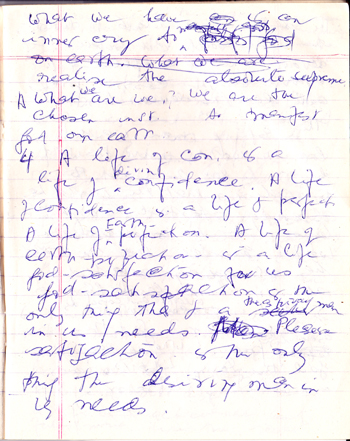 What we have is an
inner cry to
on earth. What we are
realise the absolute supreme
A What are we? We are the
chosen inst. to manifest
God on earth
4 A life of con. is a
life of divine confidence. A life
of confidence is a life of perfect
A life of Earth perfection. A life of
earth is a life
God-satisfaction for us
God-satisfaction is the
only thing that a man
in us needs. Pleasure
satisfaction is the only
thing the desiring man in
us needs.